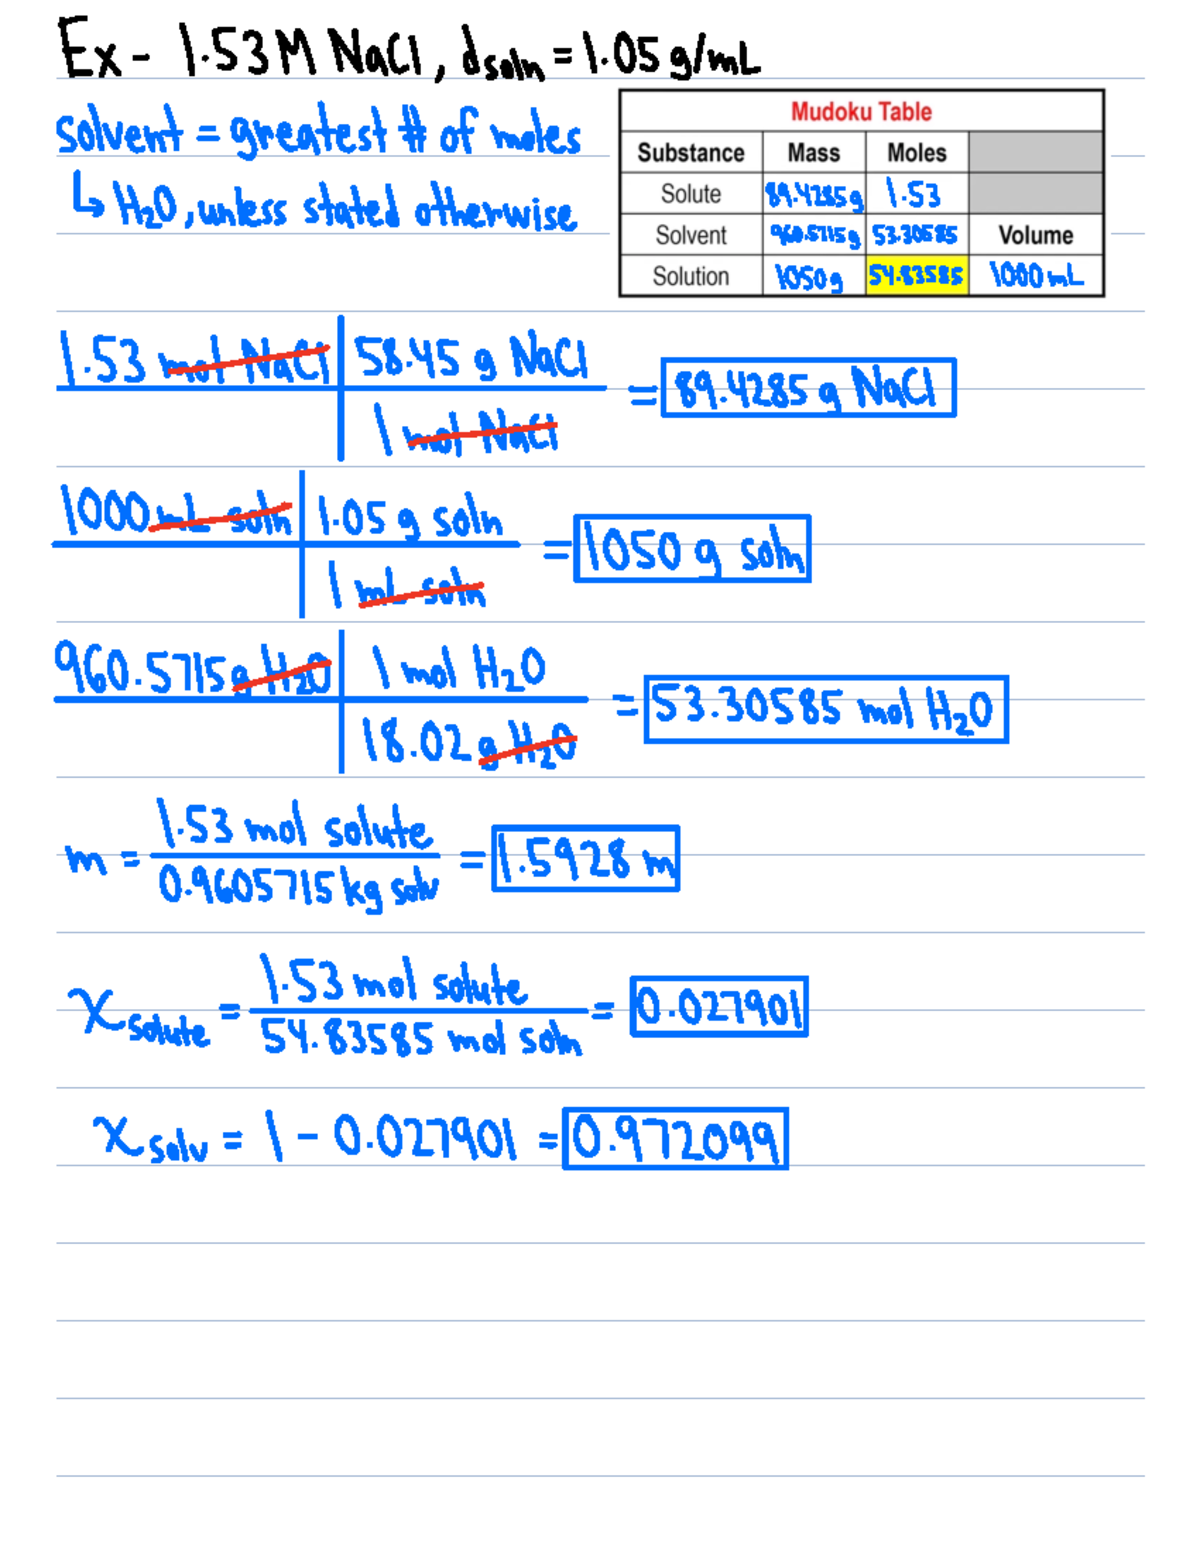 Ex - 1.53 M NaCl, dsoln = 1.05 g/mL
solvent = greatest # of moles
↳ H₂O, unless stated otherwise
Mudoku Table
Substance Mass Moles
Solute 89.4285g 1.53
Solvent 960.5715g 53.30585 Volume
Solution 1050g 54.83585 1000 mL
1.53 mol NaCl | 58.45 g NaCl = 89.4285 g NaCl
1 mol NaCl
1000 mL soln | 1.05 g soln = 1050 g soln
1 mL soln
960.5715 g H₂O | 1 mol H₂O = 53.30585 mol H₂O
18.02 g H₂O
m = 1.53 mol solute = 1.5928 m
0.9605715 kg solv
χsolute = 1.53 mol solute = 0.027901
54.83585 mol soln
χsolv = 1 - 0.027901 = 0.972099